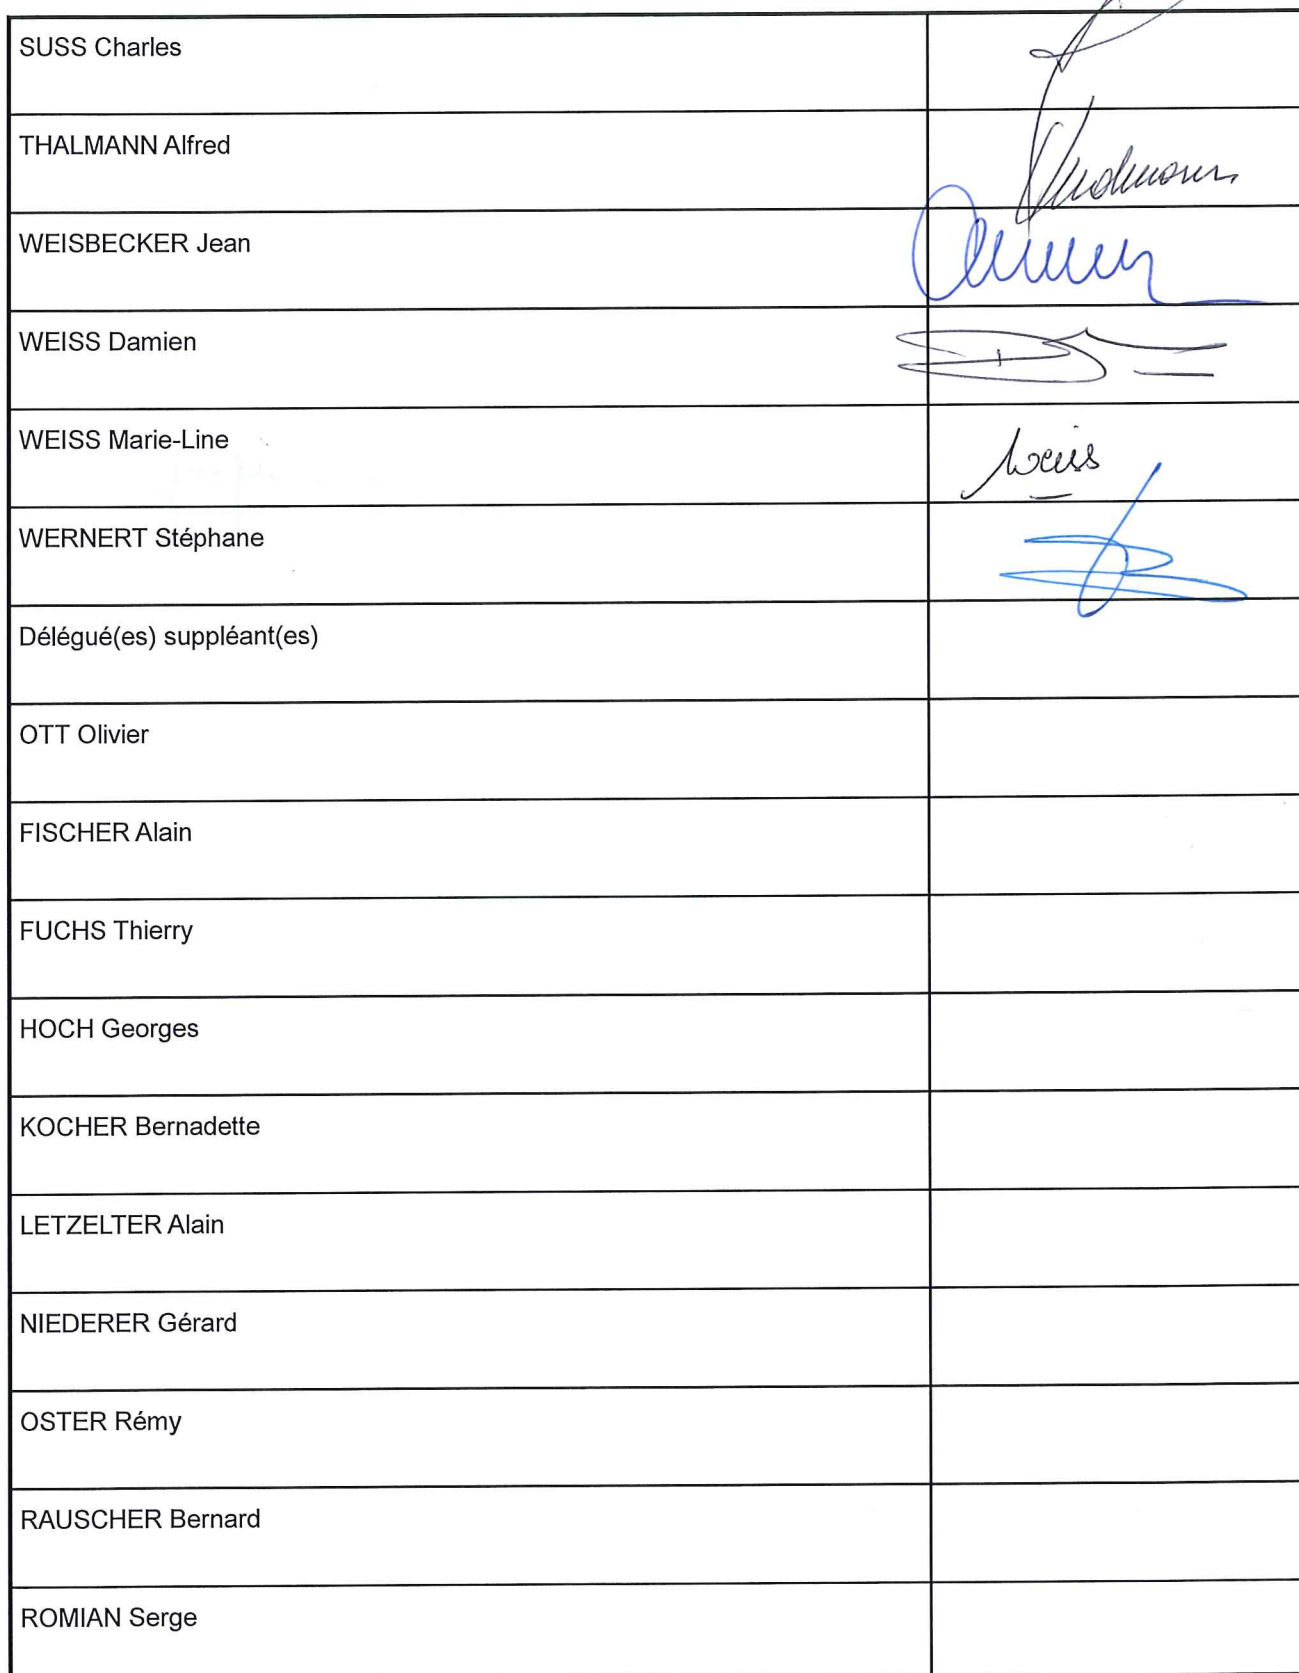 SUSS Charles
THALMANN Alfred
Thalmann
WEISBECKER Jean
WEISS Damien
WEISS Marie-Line
Weiss
WERNERT Stéphane
Délégué(es) suppléant(es)
OTT Olivier
FISCHER Alain
FUCHS Thierry
HOCH Georges
KOCHER Bernadette
LETZELTER Alain
NIEDERER Gérard
OSTER Rémy
RAUSCHER Bernard
ROMIAN Serge